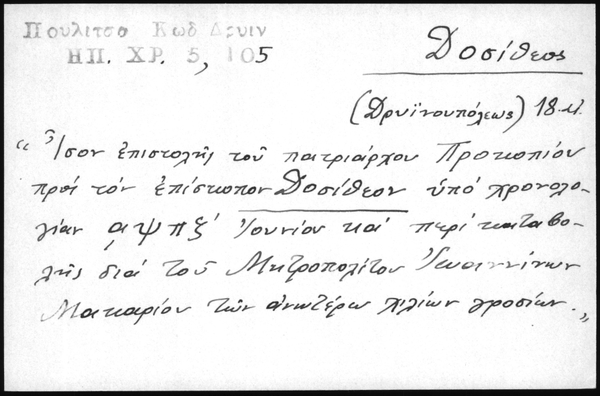 Πουλιτσα Κωδ Δρυιν
ΗΠ. ΧΡ. 5, 105
Δοσίθεος
(Δρυϊνουπόλεως) 18 
"Ἴσον ἐπιστολῆς τοῦ πατριάρχου Προκοπίου
πρὸς τὸν ἐπίσκοπον Δοσίθεον ὑπό χρονολο-
γίαν αψπξ´ Ἰουνίου καί περί καταβο-
λῆς διά τοῦ Μητροπολίτου Ἰωαννίνων
Μακαρίου τῶν ἀνωτέρω χιλίων γροσίων."